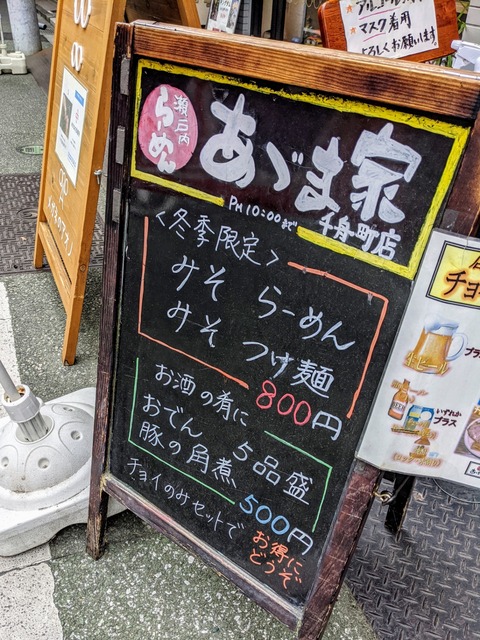 アルコール
マスク着用
よろしくお願います
瀬戸内
らーめん
あづま家
PM10:00まで
千舟町店
<冬季限定>
みそ らーめん
みそ つけ麺
800円
お酒の肴に
おでん 5品盛
豚の角煮
500円
チョイのみセットで
お得に
どうぞ
チョ
ビール
プラ
いずれか
プラス